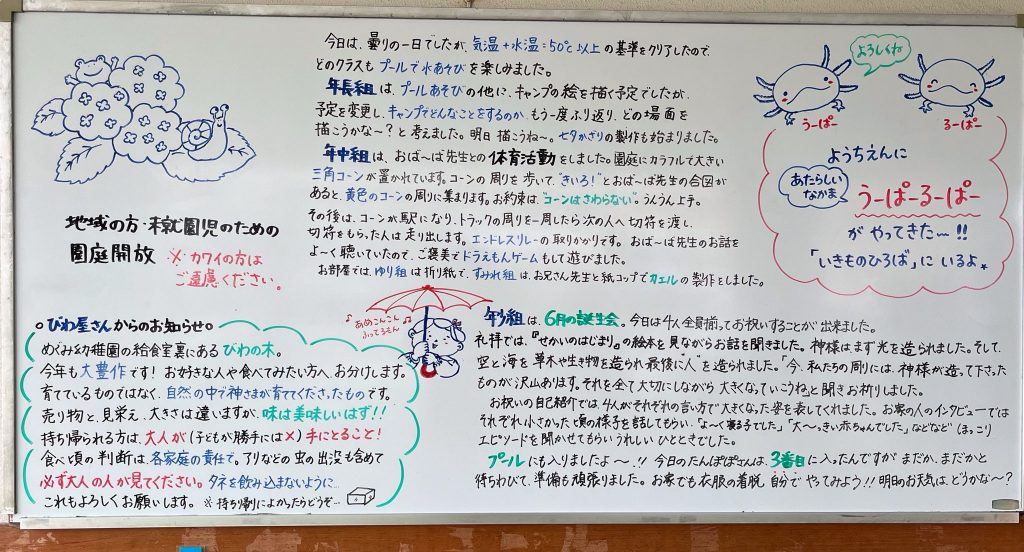 今日は、曇りの一日でしたが、気温+水温=50℃以上の基準をクリアしたので、
どのクラスもプールで水あそびを楽しみました。
年長組は、プールあそびの他に、キャンプの絵を描く予定でしたが、
予定を変更し、キャンプでどんなことをするのか、もう一度ふり返り、どの場面を
描こうかな〜?と考えました。明日 描こうね〜。七夕かざりの製作も始まりました。
年中組は、おば〜ば先生との体育活動をしました。園庭にカラフルで大きい
三角コーンが置かれています。コーンの周りを歩いて、"きいろ!"とおば〜ば先生の合図が
あると、黄色のコーンの周りに集まります。お約束は、"コーンはさわらない"。うんうん上手。
その後は、コーンが駅になり、トラックの周りを一周したら次の人へ切符を渡し、
切符をもらった人は走り出します。エンドレスリレーの取りかかりです。おば〜ば先生のお話を
よ〜く聴いていたので、ご褒美でドラえもんゲームもして遊びました。
お部屋では、ゆり組は折り紙で、すみれ組は、お兄さん先生と紙コップでカエルの製作をしました。
よろしくね
うーぱー
るーぱー
ようちえんに
あたらしい
なかま
うーぱーるーぱー
が やってきた〜!!
「いきものひろば」に いるよ。
地域の方・未就園児のための
園庭開放
※カワイの方は
ご遠慮ください。
あめこんこん
ふってるもん
○びわ屋さんからのお知らせ○
めぐみ幼稚園の給食室裏にあるびわの木。
今年も大豊作です!お好きな人や食べてみたい方へ、お分けします。
育てているものではなく、自然の中で神さまが育ててくださったものです。
売り物と、見栄え、大きさは違いますが、味は美味しいはず!!
持ち帰られる方は、大人が(子どもが勝手には×)手にとること!
食べ頃の判断は、各家庭の責任で。アリなどの虫の出没も含めて
必ず大人の人が見てください。タネを飲み込まないように…
これもよろしくお願いします。※持ち帰りによかったらどうぞ…
年少組は、6月の誕生会。今日は4人全員揃ってお祝いすることが出来ました。
礼拝では、『せかいのはじまり』の絵本を見ながらお話を聞きました。神様はまず光を造られました。そして、
空と海を、草木や生き物を造られ最後に"人"を造られました。「今、私たちの周りには、神様が造って下さった
ものが沢山あります。それを全て大切にしながら大きくなっていこうね」と聞きお祈りしました。
お祝いの自己紹介では、4人がそれぞれの言い方で大きくなった姿を表してくれました。お家の人のインタビューでは
それぞれ小さかった頃の様子を話してもらい、「よ〜く寝る子でした」「大〜っきい赤ちゃんでした」などなど ほっこり
エピソードを聞かせてもらい うれしい ひとときでした。
プールにも入りましたよ〜!!今日のたんぽぽさんは、3番目に入ったんですが まだか、まだかと
待ちわびて、準備も頑張りました。お家でも衣服の着脱、自分で やってみよう!!明日のお天気は、どうかな〜?